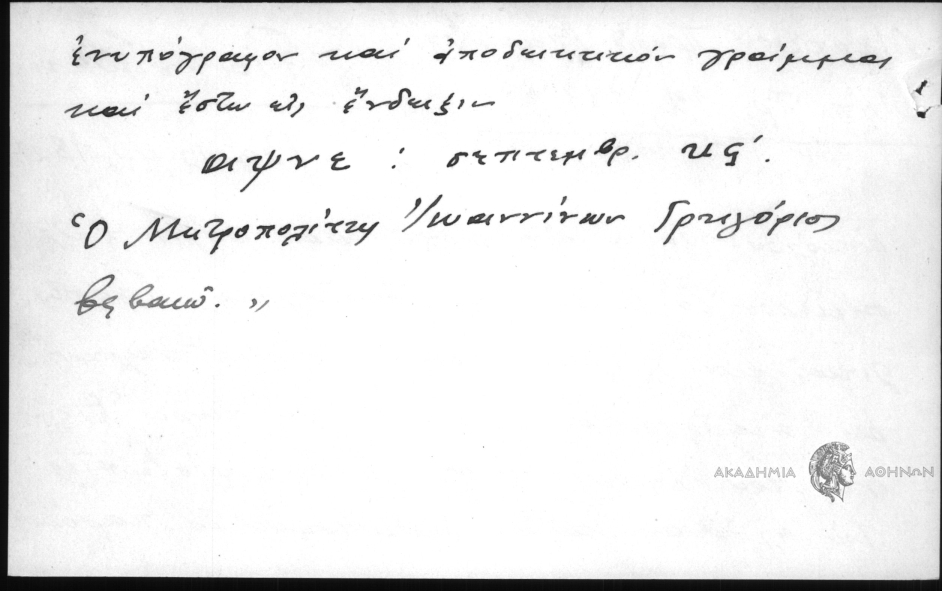 ἐνυπόγραφον καί ἀποδεικτικόν γράμμα
καί ἔστω εἰς ἔνδειξιν
αψνε : σεπτεμβρ. κς΄.
Ὁ Μητροπολίτης Ἰωαννίνων Γρηγόριος
βεβαιῶ. »
ΑΚΑΔΗΜΙΑ ΑΘΗΝΩΝ